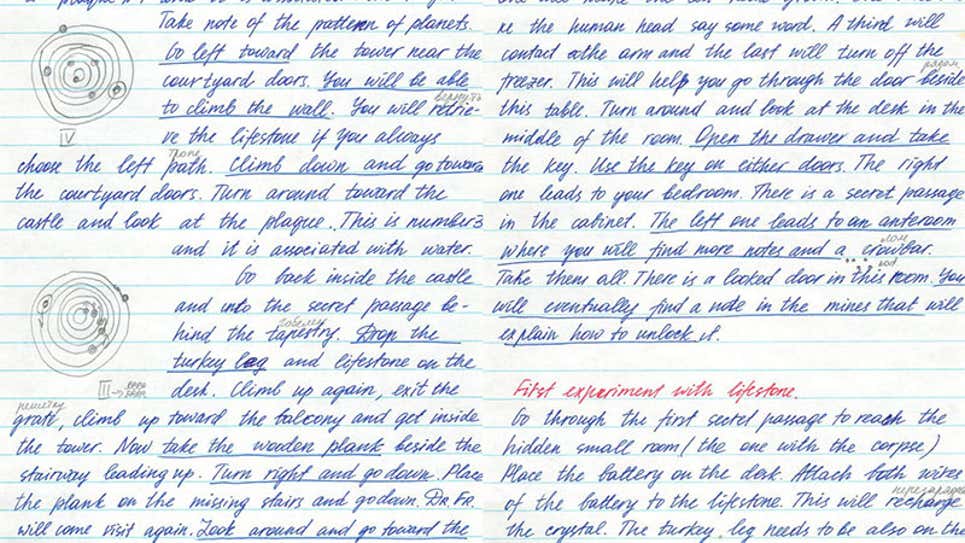 Take note of the pattern of planets.
Go left toward the tower near the
courtyard doors. You will be able
to climb the wall. You will retrie-
вернуть
ve the lifestone if you always
IV
choose the left path. Climb down and go toward
тропе
the courtyard doors. Turn around toward the
castle and look at the plaque. This is number 3
and it is associated with water.
Go back inside the castle
and into the secret passage be-
hind the tapestry. Drop the
гобелен
turkey leg and lifestone on the
desk. Climb up again, exit the
III →
решетку
grate, climb up toward the balcony and get inside
the tower. Now take the wooden plank beside the
stairway leading up. Turn right and go down. Place
the plank on the missing stairs and go down. Dr. Fr.
will come visit again. Look around and go toward the
ke the human head say some word. A third will
contact othe arm and the last will turn off the
freezer. This will help you go through the door beside
рядом
this table. Turn around and look at the desk in the
middle of the room. Open the drawer and take
the key. Use the key on either doors. The right
one leads to your bedroom. There is a secret passage
in the cabinet. The left one leads to an anteroom
where you will find more notes and a crowbar.
лом
Take them all. There is a looked door in this room. You
will eventually find a note in the mines that will
explain how to unlock it.
First experiment with lifestone.
Go through the first secret passage to reach the
hidden small room (the one with the corpse)
Place the battery on the desk. Attach both wires
of the battery to the lifestone. This will recharge
перезарядка
the crystal. The turkey leg needs to be also on the